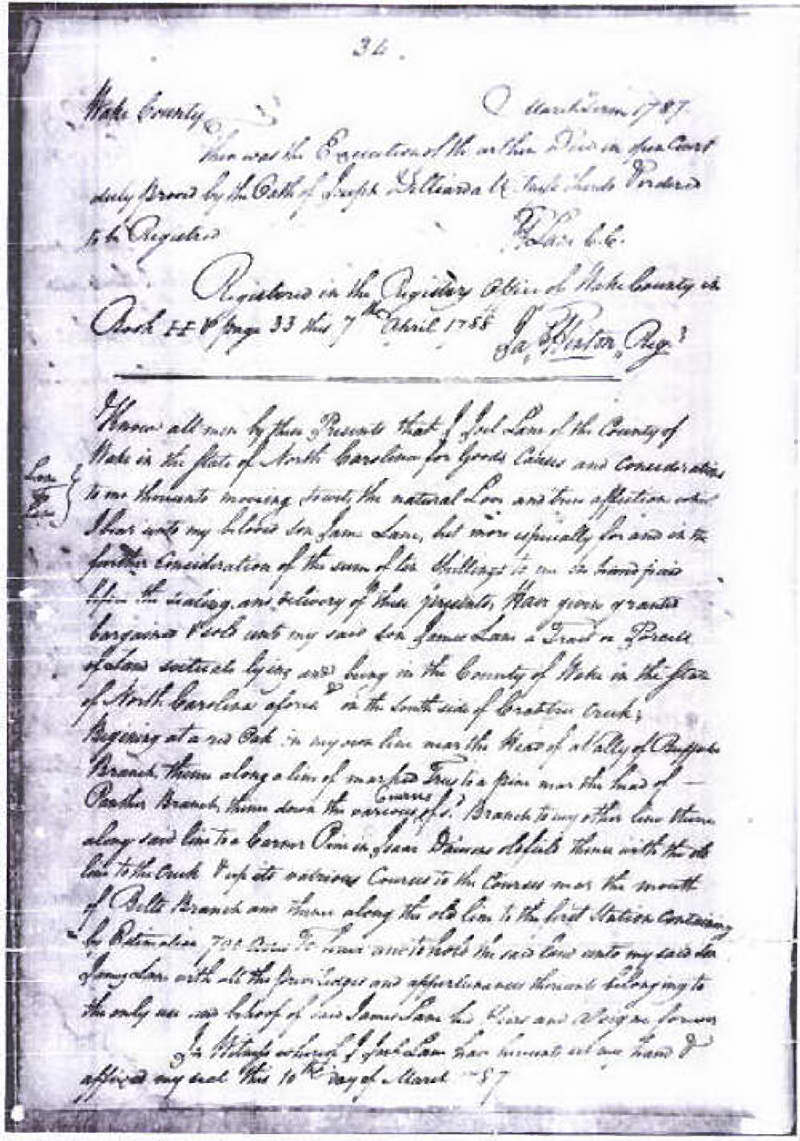 34.
Wake County March Term 1787.
Then was the Execution of the within Deed in open Court
duly Proved by the Oath of Joseph & ordered
to be Registred
H Lane C.C.
Registered in the Registers Office of Wake County in
Book H & page 33 this 7th April 1788
Ja, Hinton, Regr
Know all men by these Presents that I Joel Lane of the County of
Wake in the State of North Carolina for Good Causes and Considerations
Lane
to
Lane
to me thereunto moving towit, the natural Love and true affection which
I bear unto my beloved son James Lane, but more especially for and in the
further Consideration of the sum of ten Shillings to me in hand paid
before the sealing and delivery of these presents, Have given granted
bargained & sold unto my said son James Lane a Tract or Parcel
of Land situate lying and being in the County of Wake in the State
of North Carolina aforesd on the South side of Crabtree Creek;
Begining at a red Oak in my own line near the Head of a Vally of Buffalo
Branch thence along a line of marked Trees to a pine near the head of —
Panther Branch, thence down the various Courses of sd Branch to my other line thence
along said line to a Corner Pine in Isaac oldfield thence with the old
line to the Creek & up its various Courses to the Courses near the mouth
of Belts Branch and thence along the old line to the first Station Containing
by Estimation 700 Acres To have and to hold the said land unto my said Son
James Lane with all the priviledges and appurtenances thereunto belonging to
the only use and behoof of said James Lane his Heirs and Assigns forever
In Witness whereof I Joel Lane have hereunto set my hand &
affixed my seal this 10th day of March 1787